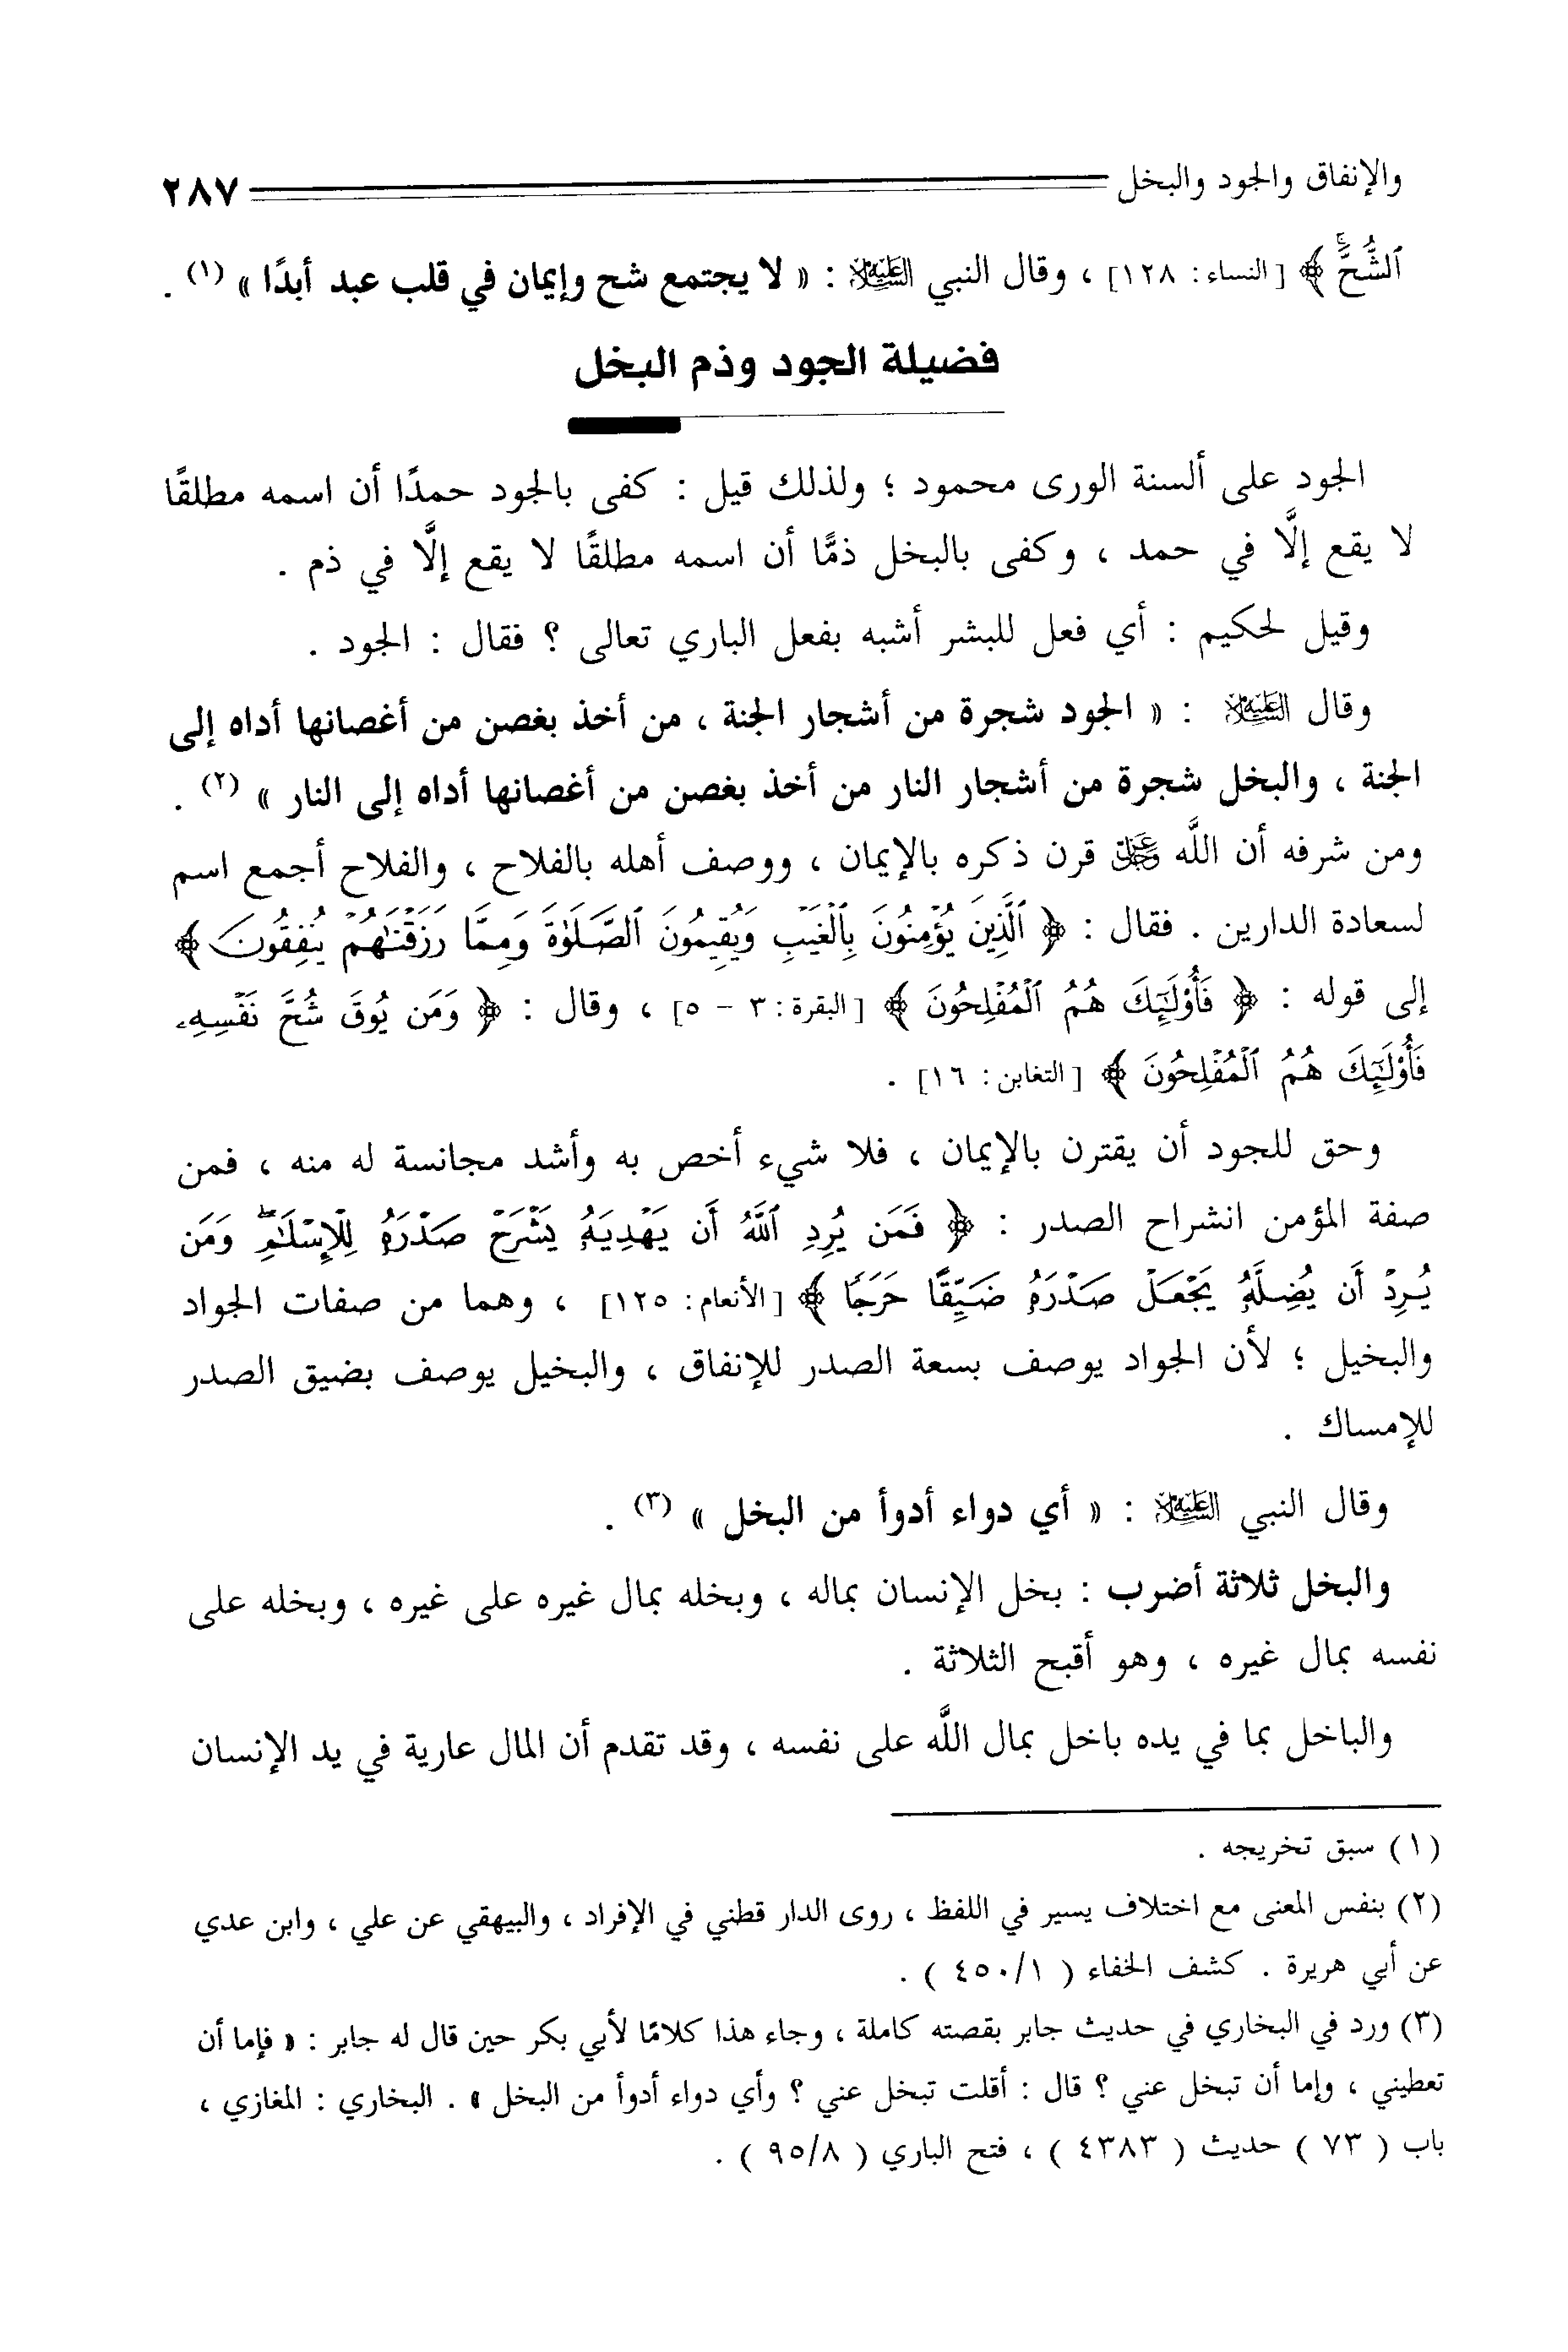 والإنفاق والجود والبخل ٢٨٧
ٱلشُّحَّۚ ﴾ [ النساء : ١٢٨] ، وقال النبي عليه السلام : « لا يجتمع شح وإيمان في قلب عبد أبدًا » (١) .
فضيلة الجود وذم البخل
الجود على ألسنة الورى محمود ؛ ولذلك قيل : كفى بالجود حمدًا أن اسمه مطلقًا
لا يقع إلَّا في حمد ، وكفى بالبخل ذمًّا أن اسمه مطلقًا لا يقع إلَّا في ذم .
وقيل لحكيم : أي فعل للبشر أشبه بفعل الباري تعالى ؟ فقال : الجود .
وقال عليه السلام : « الجود شجرة من أشجار الجنة ، من أخذ بغصن من أغصانها أداه إلى
الجنة ، والبخل شجرة من أشجار النار من أخذ بغصن من أغصانها أداه إلى النار » (٢) .
ومن شرفه أن اللَّه عز وجل قرن ذكره بالإيمان ، ووصف أهله بالفلاح ، والفلاح أجمع اسم
لسعادة الدارين . فقال : ﴿ ٱلَّذِينَ يُؤْمِنُونَ بِٱلْغَيْبِ وَيُقِيمُونَ ٱلصَّلَوٰةَ وَمِمَّا رَزَقْنَٰهُمْ يُنفِقُونَ ﴾
إلى قوله : ﴿ فَأُوْلَٰٓئِكَ هُمُ ٱلْمُفْلِحُونَ ﴾ [ البقرة : ٣ - ٥] ، وقال : ﴿ وَمَن يُوقَ شُحَّ نَفْسِهِۦ
فَأُوْلَٰٓئِكَ هُمُ ٱلْمُفْلِحُونَ ﴾ [ التغابن : ١٦] .
وحق للجود أن يقترن بالإيمان ، فلا شيء أخص به وأشد مجانسة له منه ، فمن
صفة المؤمن انشراح الصدر : ﴿ فَمَن يُرِدِ ٱللَّهُ أَن يَهْدِيَهُۥ يَشْرَحْ صَدْرَهُۥ لِلْإِسْلَٰمِۖ وَمَن
يُرِدْ أَن يُضِلَّهُۥ يَجْعَلْ صَدْرَهُۥ ضَيِّقًا حَرَجًا ﴾ [ الأنعام : ١٢٥] ، وهما من صفات الجواد
والبخيل ؛ لأن الجواد يوصف بسعة الصدر للإنفاق ، والبخيل يوصف بضيق الصدر
للإمساك .
وقال النبي عليه السلام : « أي دواء أدوأ من البخل » (٣) .
والبخل ثلاثة أضرب : بخل الإنسان بماله ، وبخله بمال غيره على غيره ، وبخله على
نفسه بمال غيره ، وهو أقبح الثلاثة .
والباخل بما في يده باخل بمال اللَّه على نفسه ، وقد تقدم أن المال عارية في يد الإنسان
(١) سبق تخريجه .
(٢) بنفس المعنى مع اختلاف يسير في اللفظ ، روى الدار قطني في الإفراد ، والبيهقي عن علي ، وابن عدي
عن أبي هريرة . كشف الخفاء ( ٤٥٠/١ ) .
(٣) ورد في البخاري في حديث جابر بقصته كاملة ، وجاء هذا كلامًا لأبي بكر حين قال له جابر : « فإما أن
تعطيني ، وإما أن تبخل عني ؟ قال : أقلت تبخل عني ؟ وأي دواء أدوأ من البخل » . البخاري : المغازي ،
باب ( ٧٣ ) حديث ( ٤٣٨٣ ) ، فتح الباري ( ٩٥/٨ ) .